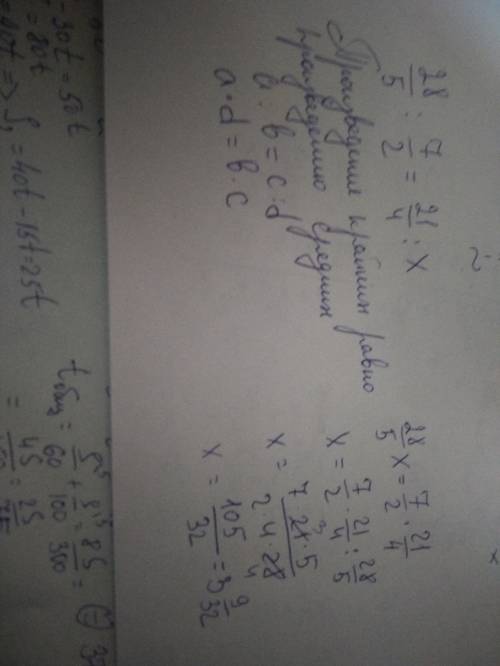 28/5 : 7/2 = 21/4 : x
Произведение крайних равно
произведению средних
a : b = c : d
a · d = b · c
28/5 x = 7/2 · 21/4
x = 7/2 · 21/4 : 28/5
x = 7 · 21 · 5 / 2 · 4 · 28
3
4
x = 105/32 = 3 9/32
- 30t = 50t
= 80t
= 40t => S₁ = 40t - 15t = 25t